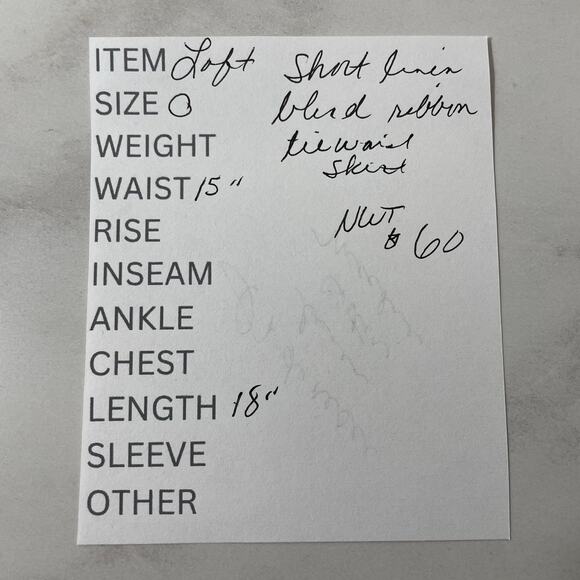 ITEM Loft Short linen
SIZE 0 blend ribbon
WEIGHT tie waist
skirt
WAIST 15"
NWT
RISE $60
INSEAM
ANKLE
CHEST
LENGTH 18"
SLEEVE
OTHER